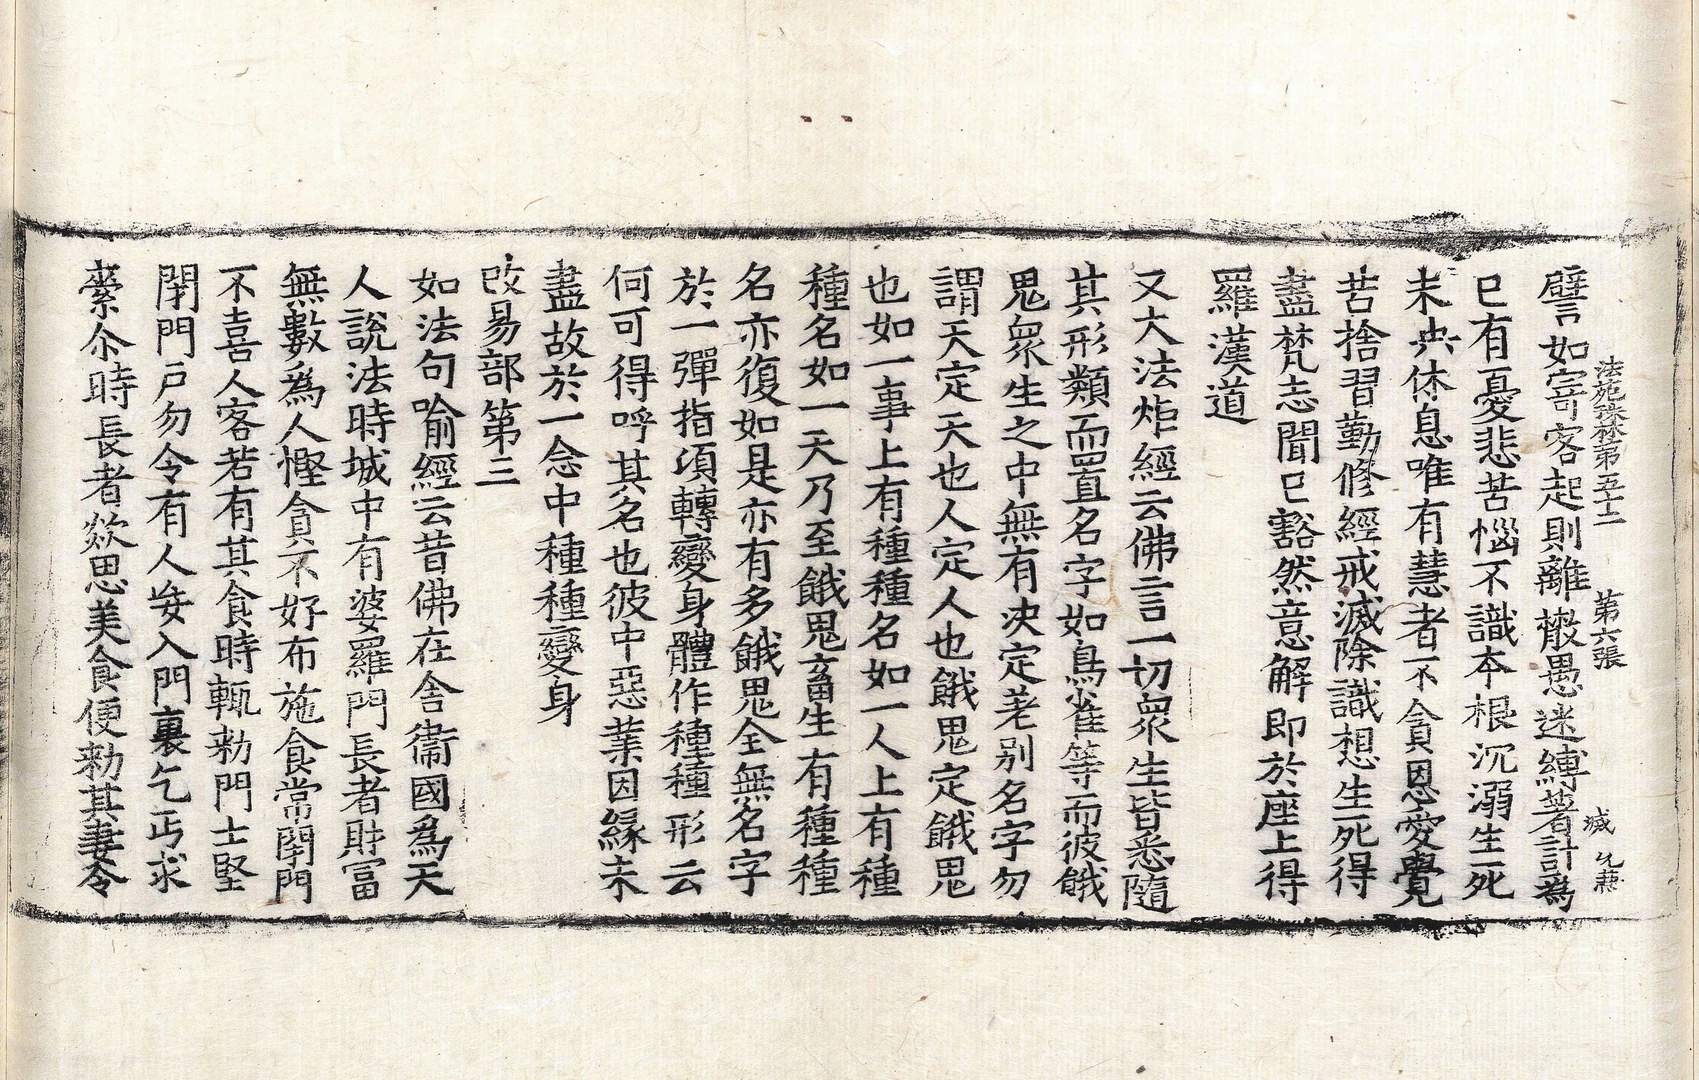 法苑珠林第五十二 第六張 緘
譬如寄客起則離散愚迷縛著計爲
已有憂悲苦惱不識本根沉溺生死
未央休息唯有慧者不貪恩愛覺
苦捨習勤修經戒滅除識想生死得
盡梵志聞已豁然意解即於座上得
羅漢道
又大法炬經云佛言一切衆生皆悉隨
其形類而置名字如鳥雀等而彼餓
鬼衆生之中無有決定差别名字勿
謂天定天也人定人也餓鬼定餓鬼
也如一事上有種種名如一人上有種
種名如一天乃至餓鬼畜生有種種
名亦復如是亦有多餓鬼全無名字
於一彈指頃轉變身體作種種形云
何可得呼其名也彼中惡業因緣未
盡故於一念中種種變身
改易部第三
如法句喻經云昔佛在舍衞國爲天
人說法時城中有婆羅門長者財富
無數爲人慳貪不好布施食常閉門
不喜人客若有其食時輒勑門士堅
閉門戶勿令有人妄入門裏乞丐求
索尒時長者欻思美食便勑其妻令